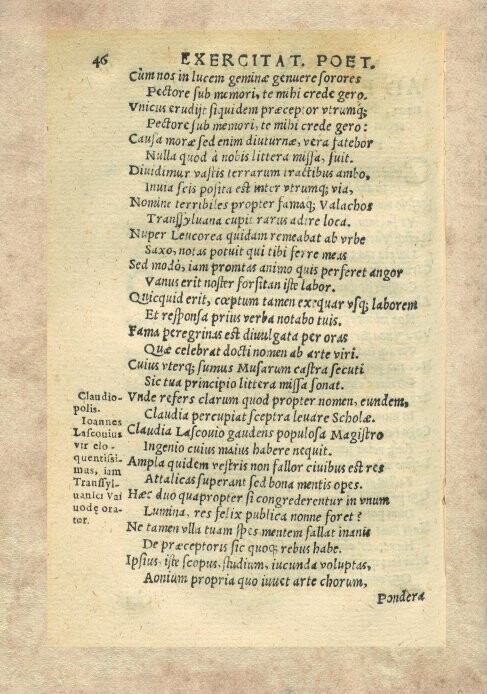 46 EXERCITAT. POET.
Cùm nos in lucem geminæ genuere sorores
Pectore sub memori, te mihi crede gero.
Vnicus erudijt siquidem præceptor vtrumq;
Pectore sub memori, te mihi crede gero:
Causa moræ sed enim diuturnæ, vera fatebor
Nulla quod à nobis littera missa, fuit.
Diuidimur vastis terrarum tractibus ambo,
Inuia scis posita est inter vtrumq; via,
Nomine terribiles propter famaq; Valachos
Transsyluana cupit rarus adire loca.
Nuper Leucorea quidam remeabat ab vrbe
Saxo, notas potuit qui tibi ferre meas
Sed modò, iam promtas animo quis perferet angor
Vanus erit noster forsitan iste labor.
Quicquid erit, cœptum tamen exequar vsq; laborem
Et responsa prius verba notabo tuis.
Fama peregrinas est diuulgata per oras
Quæ celebrat docti nomen ab arte viri.
Cuius vterq; sumus Musarum castra secuti
Sic tua principio littera missa sonat.
Vnde refers clarum quod propter nomen, eundem,
Claudia percupiat sceptra leuare Scholæ.
Claudia Lascouio gaudens populosa Magistro
Ingenio cuius maius habere nequit.
Ampla quidem vestris non fallor ciuibus est res
Attalicas superant sed bona mentis opes.
Hæc duo quapropter si congrederentur in vnum
Lumina, res felix publica nonne foret?
Ne tamen vlla tuam spes mentem fallat inanis
De præceptoris sic quoq; rebus habe.
Ipsius, iste scopus, studium, iucunda voluptas,
Aonium propria quo iuuet arte chorum,
Pondera
Claudio-
polis.
Ioannes
Lascouius
vir elo-
quentissi-
mus, iam
Transsyl-
uanici Vai
uodę ora-
tor.